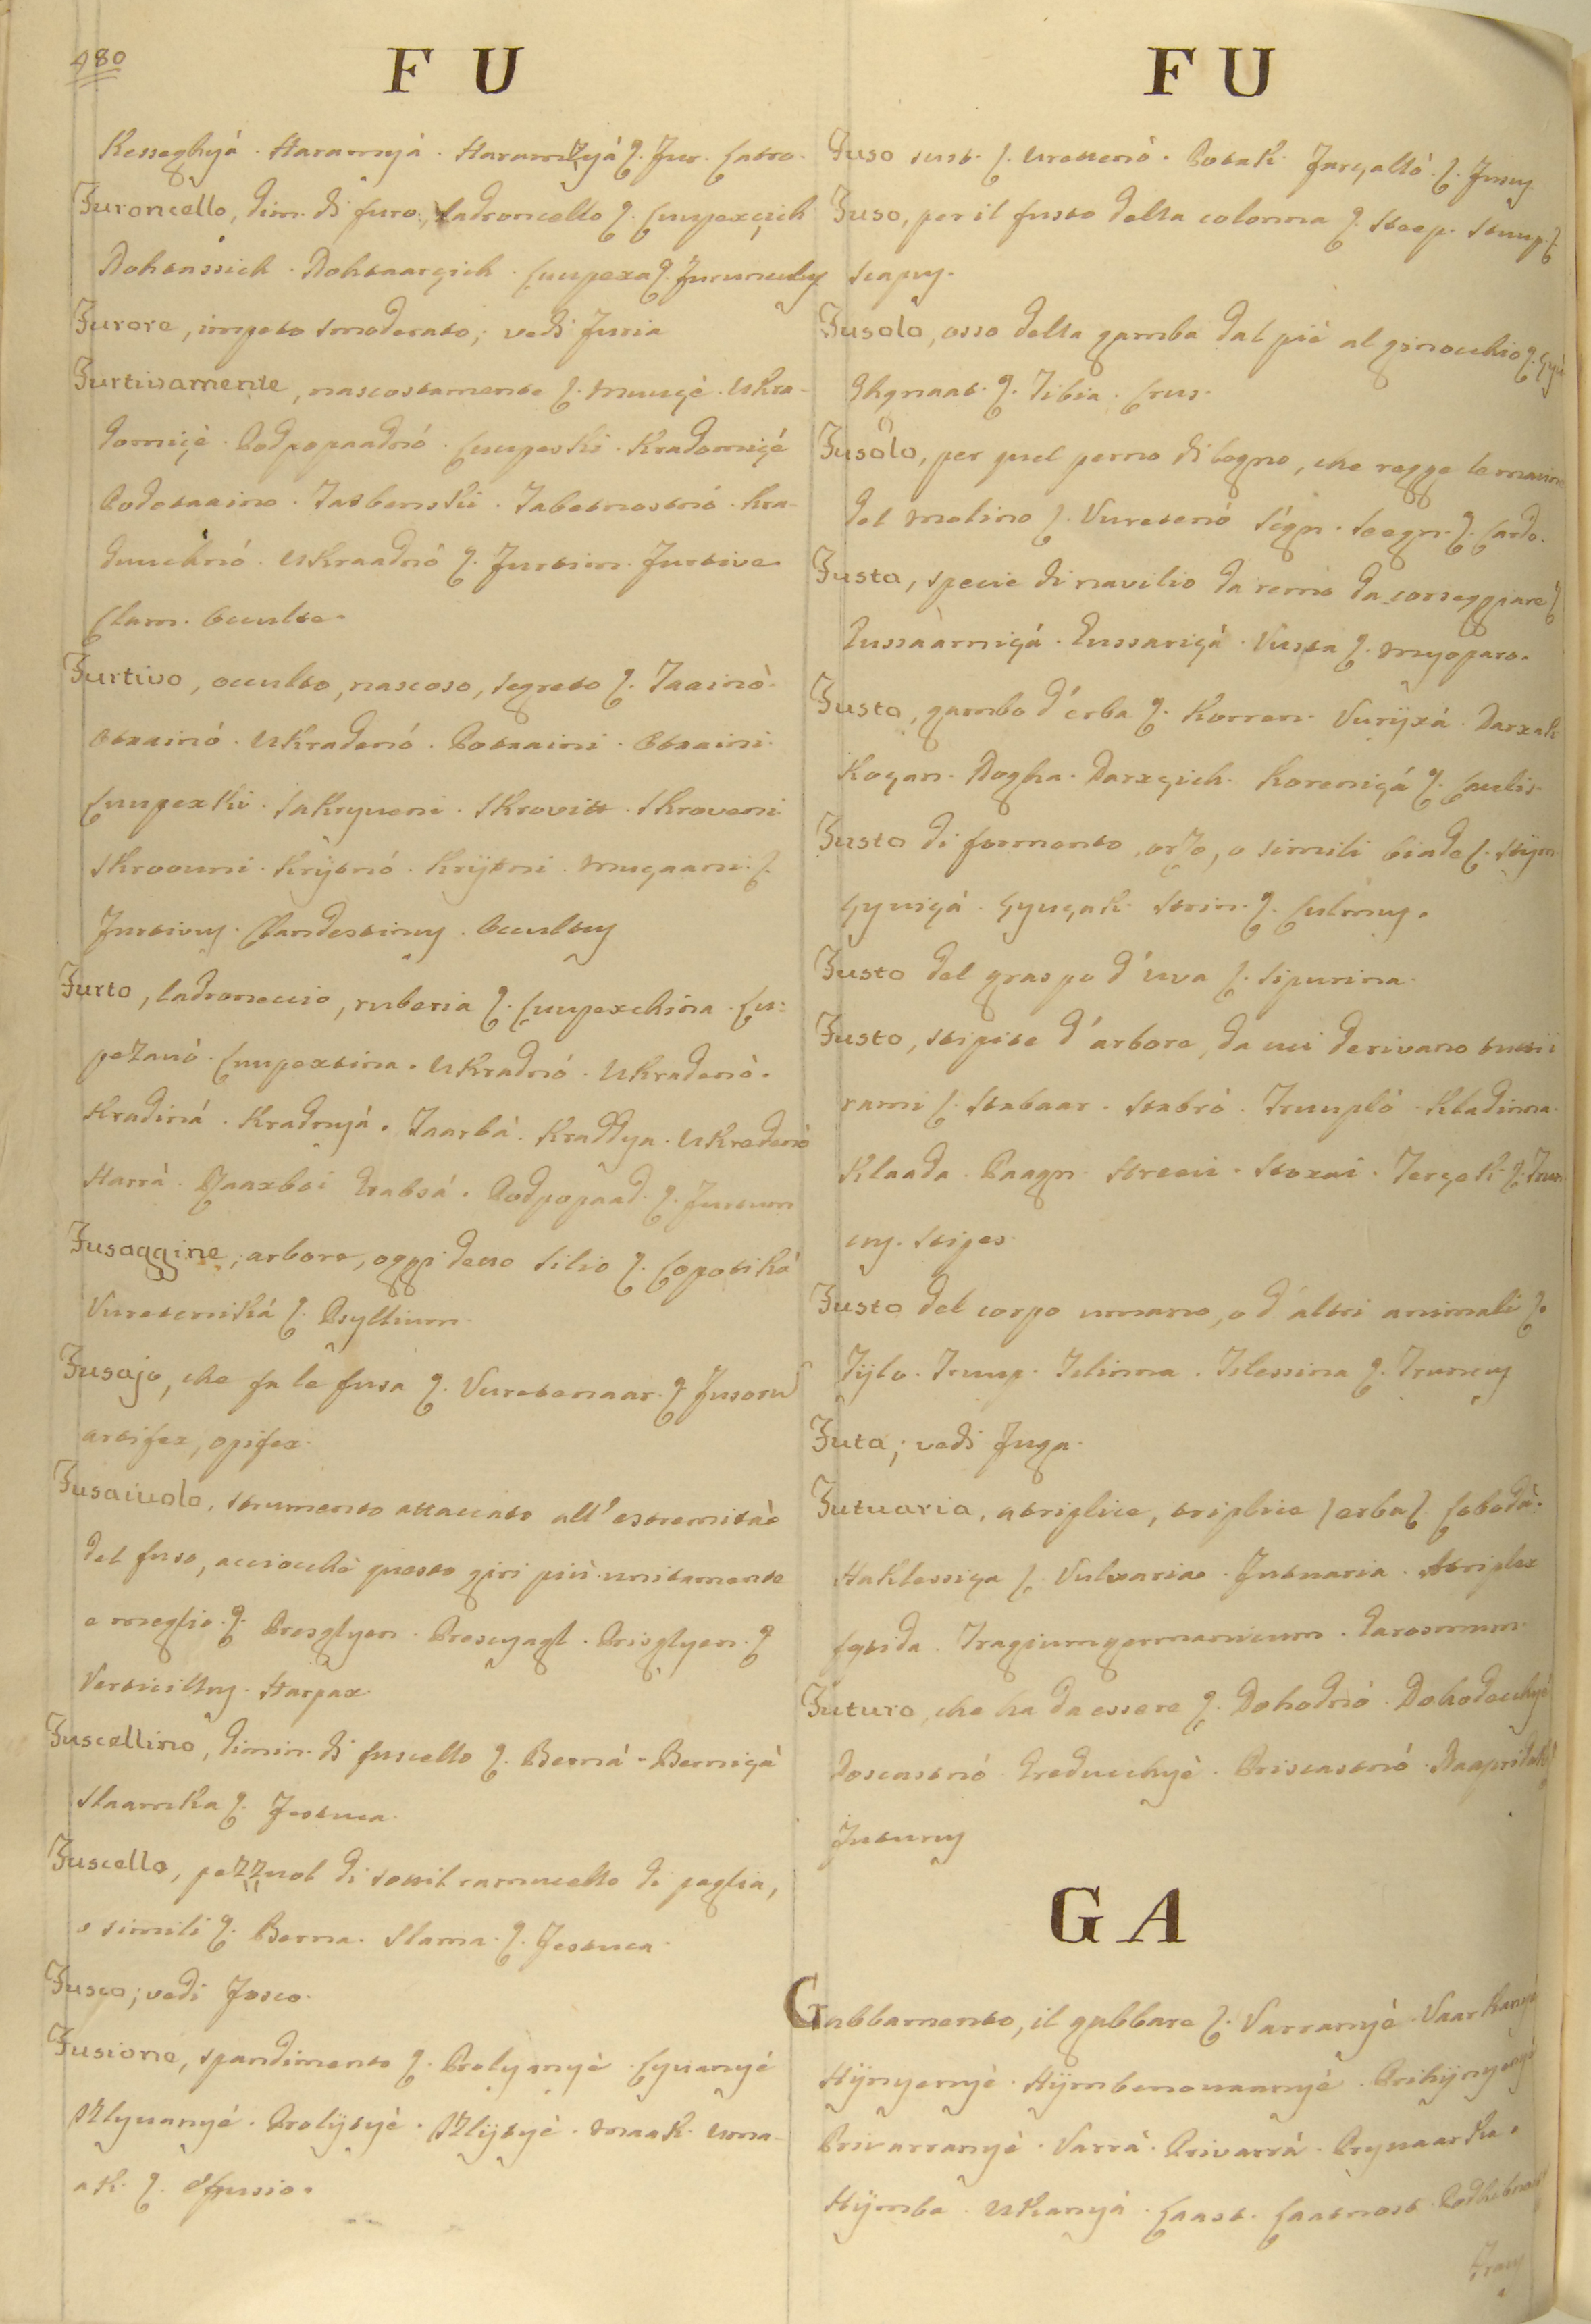 480
F U
Kesseghyá. Haramyá. Haramlyá ʃ. Fur. Latro.
Furoncello, dim. di furo, ladroncello ʃ. Luupexcich
Dohtassich. Dohtaargich. Luupexa ʃ. Furunculus
Furore, impeto smoderato; vedi Furia
Furtivamente, nascostamente ʃ. Muuçè. Ukra-
domiçè. Podpopaadnó. Luupeski. Kradomiçè
Podotaaino. Tatbenski. Tabetnostnó. Kra-
duuchnó. Ukraadnò ʃ. Furtim. Furtive
Clam. Occulte.
Furtivo, occulto, nascoso, segreto ʃ. Taainò.
Otaainó. Ukradenó. Potaaini. Otaaini.
Luupexki. Sakryveni. Skrovitt. Skroveni.
Skroouni. Krÿtnó. Krÿtni. Muçaani. ʃ.
Furtivus. Clandestinus. Occultus
Furto, ladroneccio, ruberia ʃ. Luupexchina. Lu:
pezanò. Luupextina. Ukradnó. Ukradenò.
Kradiná. Kradnyá. Taarbà. Kraddya. Ukradenò
Harrà. Grabsá. Podpopaad. ʃ. Furtum
Fusaggine, arbore, oggi detto Silio ʃ. Copotiká
Vureteniká ʃ. Psyllium.
Fusajo, che fa le fusa ʃ. Vuretenaar. ʃ Fusoru
artifex, opifex.
Fusaiuolo, strumento attaccato all' estremità
del fuso, acciocchè questo giri più unitamente
e meglio. ʃ. Presglyen. Presuyagl. Prisglyen. ʃ
Verticillus. Harpax.
Fuscellino, dimin. di fuscello ʃ. Berná. Berniçà
Slaamka ʃ. Festuca.
Fuscello, pezzuol di sottil ramucello di paglia,
o simili ʃ. Berna. Slama. ʃ. Festuca.
Fusco; vedi Fosco.
Fusione, spandimento ʃ. Prolyanyè. Lyvanyé
Izlyvanyé. Prolÿtyè. Izlÿtyè. Omaak. Uma-
ak. ʃ. Effusio.
F U
Fuso sust. ʃ. Uretenò. Potak. Fargaltò. ʃ. Fusus
Fuso, per il fusto della colonna ʃ. Steep. Stuup. ʃ
Scapus.
Fusolo, osso della gamba dal piè al ginocchio ʃ.
Ghgnaat. ʃ. Tibia. Crus.
Fusolo, per quel perno di legno, che regge le macine
del molino ʃ. Vuretenó Sègn. Seegn. ʃ. Cardo.
Fusta, specie di navilio da remo da corseggiare ʃ
Gussaàrniçá. Gussariçà. Vusta ʃ. Myoparo.
Fusto, gambo d' erba ʃ. Korren. Vurÿxá. Darxak
Koçan. Dogha. Darxgich. Koreniçá ʃ. Caulis.
Fusto di formento, orzo, o simili biade ʃ. Stÿm
Gyviçá. Gyuçak. Strin. ʃ. Culmus.
Fusto del graspo d' uva ʃ. Sipurina.
Fusto, stipite d' arbore, da cui derivano tutti i
rami ʃ. Stabaar. Stabrò. Truuplò. Kladinna.
Klaada. Paagn. Streeii. Stoxai. Tergek ʃ. Trun
cus. Stipes.
Fusto del corpo umano, o d' altri animali ʃ.
Tÿlo. Truup. Telinna. Telessina ʃ. Truncus
Futa; vedi Fuga.
Futuaria, atriplice, triplice (erba ʃ. Lobodà.
Haklessiça ʃ. Vulvaria. Futuaria. Atriplex
fętida. Tragiumgermanicum. Garosmum.
Futuro, che ha da essere ʃ. Dohodnó. Dohodecchyè
Doscastnó. Greduchyè. Priscastnó.
Futurus
G A
Gabbamento, il gabbare ʃ. Varranyè. Vaarkanyè
Hÿnyenyè. Hÿmbenovaanyè. Prihÿnyenyè
Privarranyè. Varrà. Privarrá. Prynaarka.
Hÿmba. Ukanyá. Laast. Laatnost.